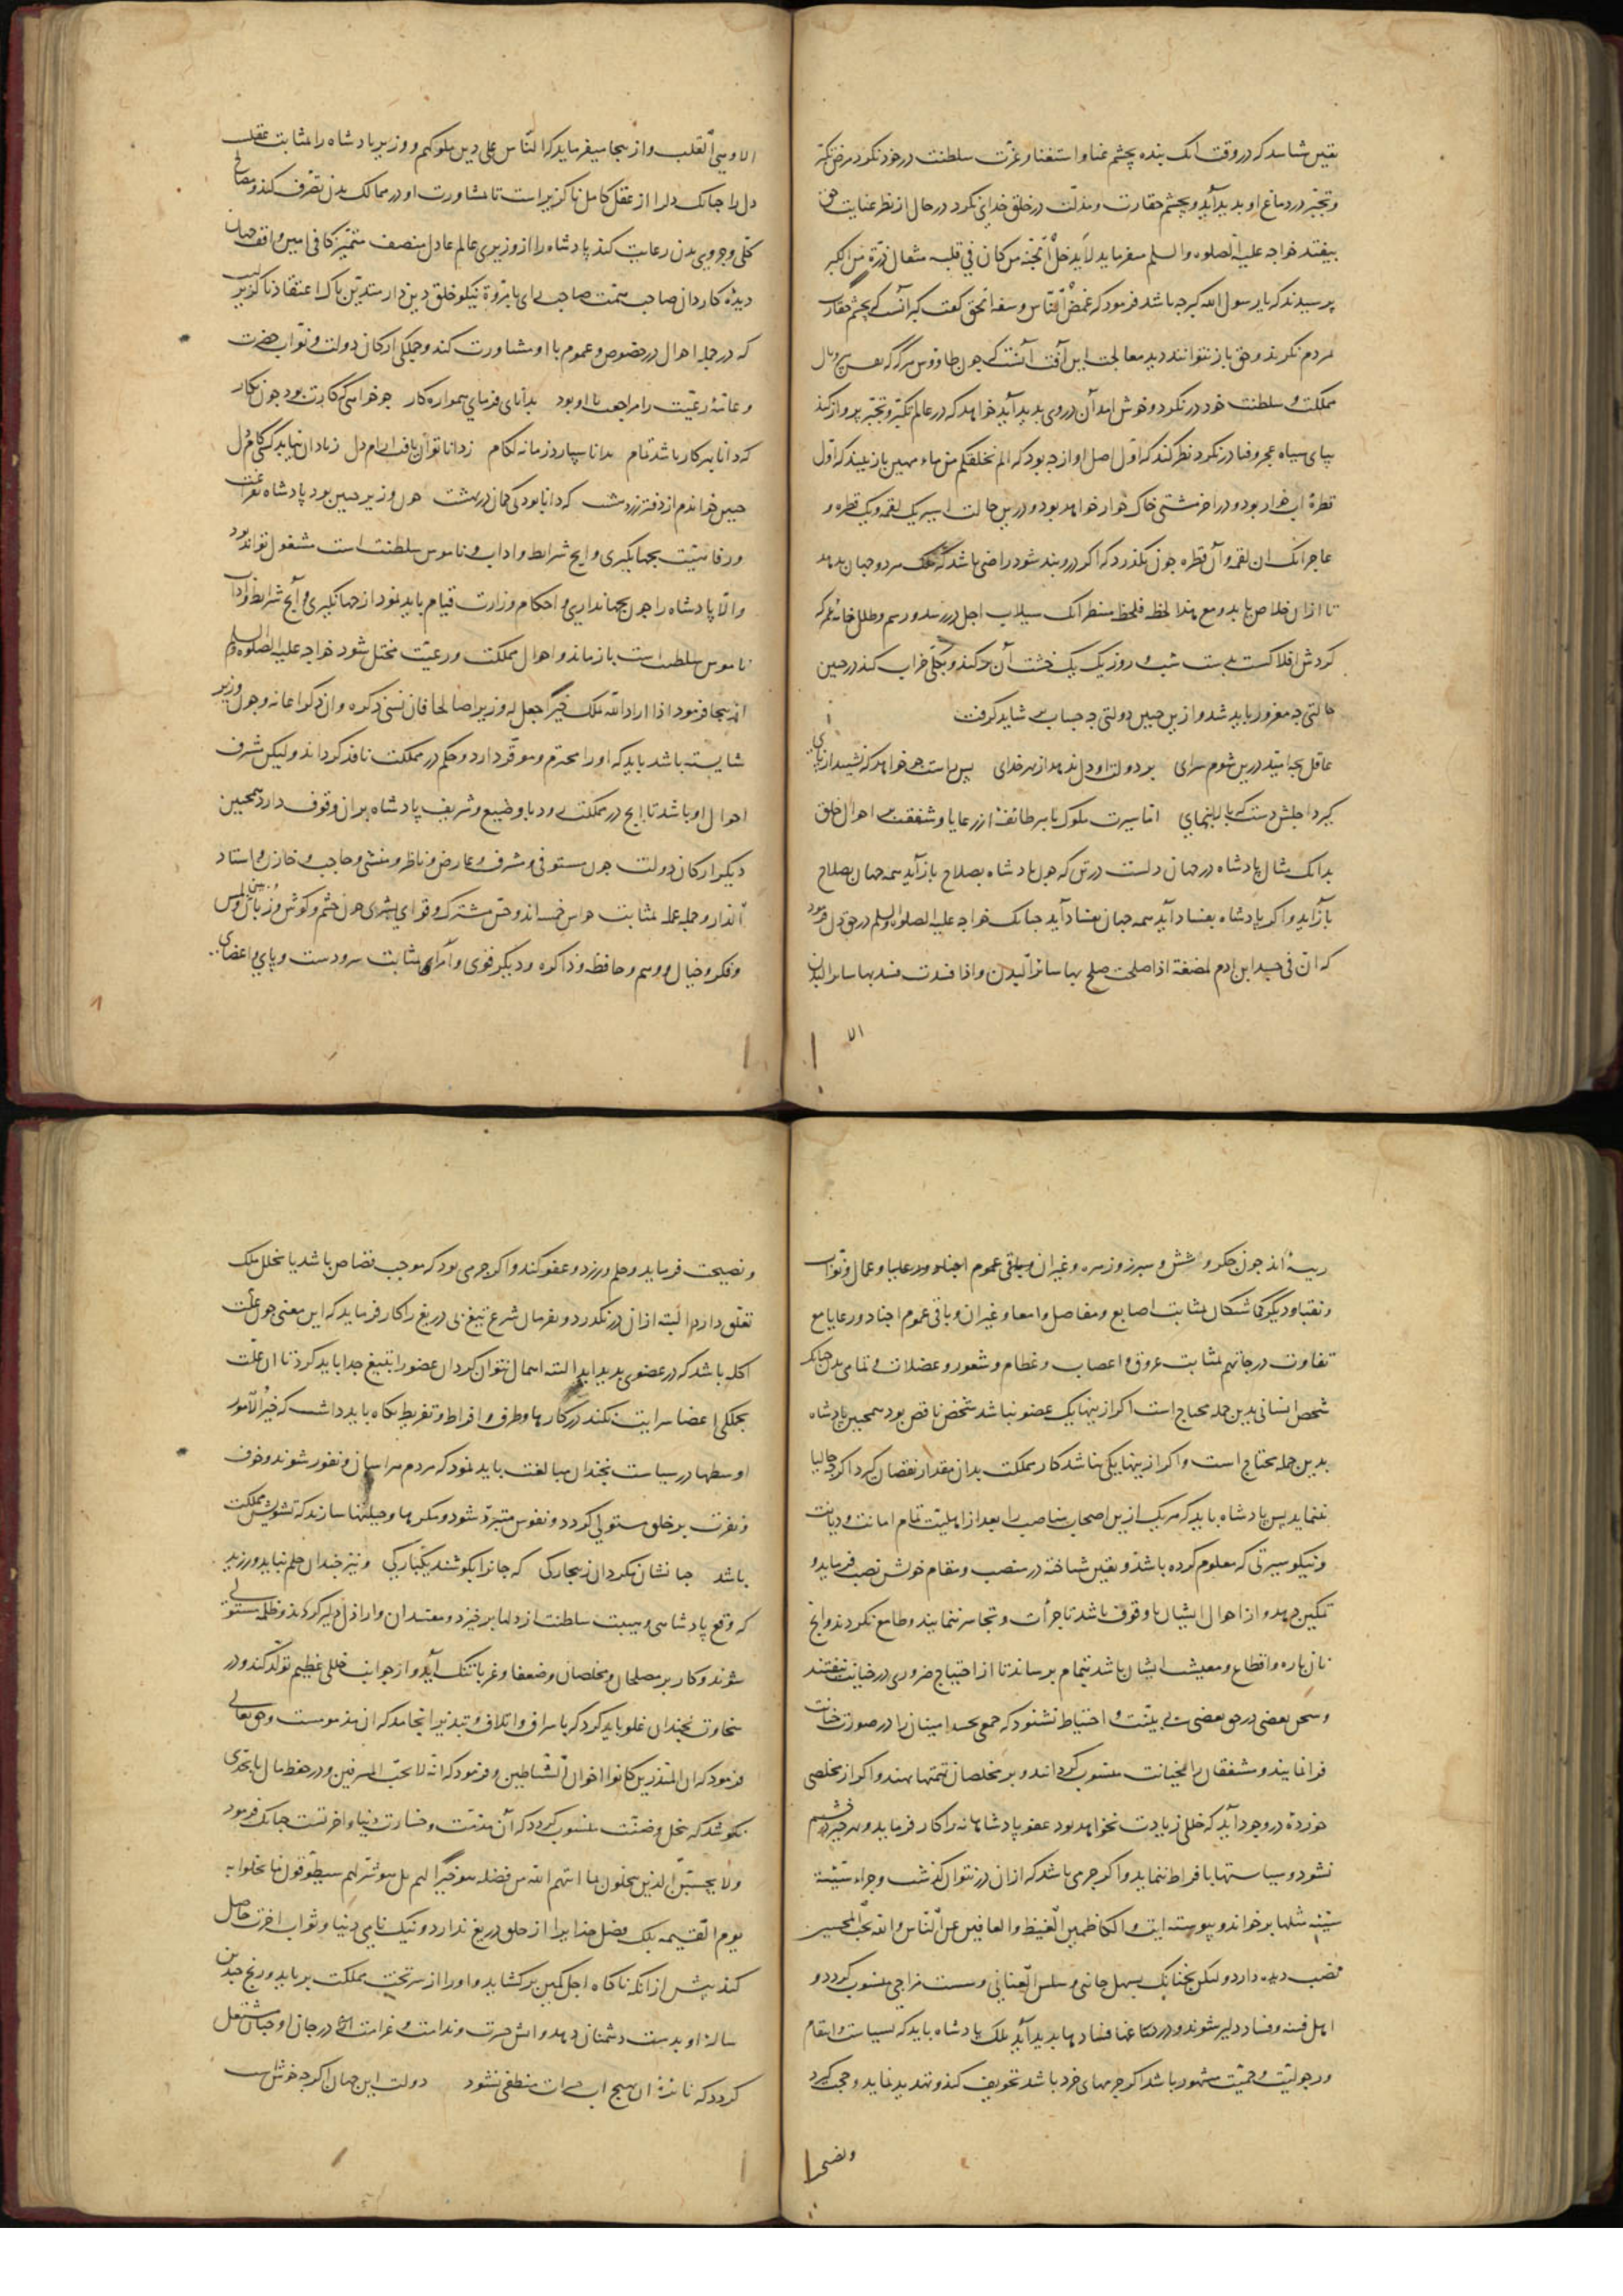 یقین شناسد که در وقت آنک بنده بچشم غنا و استغنا و عزّت سلطنت در خود نکرد مرض تکبّر
و تجبّر در دماغ او بدید آید و بچشم حقارت و مذلّت در خلق خدای نکرد در حال از نظر عنایت حق
بیفتد خواجه علیه الصلوه والسلم میفرماید لا یدخل الجنّة من کان فی قلبه مثقال ذرّة من الکبر
پرسیدند که یا رسول الله کبر چه باشد فرمود که غمض النّاس و سفه الحق گفت کبر آنست که بچشم حقارت
بمردم نکرند و حق باز نتوانند دید معالجت این آفت آنست که چون طاوس هرگه که بعین پر و بال
مملکت و سلطنت خود در نکرد و خوش آمد آن در وی بدید آید خواهد که در عالم تکبّر و تجبّر پرواز کند
بپای سیاه عجز و فنا در نکرد نظر کند که اوّل اصل او از چه بود که الم نخلقکم من ماء مهین باز بیند که اوّل
قطرهٔ آب خوار بود و در اخر مشتی خاک خوار خواهد بود و درین حالت اسیر یک لقمه و یک قطره و
عاجز آنک ان لقمه و آن قطره چون بکذرد که اکر در وبند شود راضی باشد که ملک هردو جهان بدهد
تا از ان خلاص یابد و مع هذا لحظه فلحظه منتظر آنک سیلاب اجل در رسد و رسم و طلل خانهٔ عمر که
کردش افلاک بدست شب و روز یک یک خشت آن میکند و بکلّی خراب کند در چنین
حالتی چه مغرور باید شد و از ین چنین دولتی چه حساب بر شاید کرفت
عاقل بچه امید درین شوم سرای بر دولت او دل نهد از بهر خدای پس راست جو خواهد که نشیند از پای
کیرد اجلش دست که بالا بنمای امّا سیرت ملوک با هر طائفهٔ از رعایا و شفقت بر احوال خلق
بدانک مثال پادشاه در جهان دلست در تن که چون پادشاه بصلاح باز آید همه جهان بصلاح
باز آید و اکر پادشاه بفساد آید همه جهان بفساد آید چنانک خواجه علیه الصلوه والسلم در حق دل فرمود
که انّ فی جسد ابن ادم لمضغة اذا صلحت صلح بها سائر البدن و اذا فسدت فسد بها سائر البدن
الا
الا و هی القلب و از ینجا میفرماید که النّاس علی دین ملوکهم و وزیر پادشاه را بمثابت عقلست
دل را چنانک دل را از عقل کامل ناگزیر است تا بمشاورت او در ممالک بدن تصرّف کند و مصالح
کلّی و جزوی بدن رعایت کند پادشاه را از وزیری عالم عادل منصف متمیّز کافی امین واقف جهان
دیدهٔ کاردان صاحب همّت صاحب رای با مروّة نیکو خلق دین دار متدیّن پاک اعتقاد ناگزیر است
که در جمله احوال در خصوص و عموم با او مشاورت کند و جملکی ارکان دولت و نوّاب حضرت
و عامّهٔ رعیّت را مراجعت با او بود بدانای فرمای همواره کار چو خواهی که کارت بود چون نکار
که دانا بهر کار باشد تمام بدانا سپارد زمانه لکام ز دانا توان یافت ارام دل ز نادان نیابد کسی کام دل
چنین خواندم از دفتر زردهشت که دانا بود بی کمان در بهشت چون وزیر چنین بود پادشاه بفراغت
و رفاهیّت بجهانگیری و انچ شرایط و اداب و ناموس سلطنت است مشغول تواند بود
والّا پادشاه را چون بجهانداری و احکام وزارت قیام باید نمود از جهانگیری و آنچ شرایط و آداب
ناموس سلطنت است باز ماند و احوال مملکت و رعیّت مختل شود خواجه علیه الصلوه والسلم
از ینجا فرمود اذا اراد الله بملک خیراً جعل له وزیراً صالحا فان نسی ذکره وان ذکر اعانه و چون وزیر
شایسته باشد باید که او را محترم و موقّر دارد و حکم او در مملکت نافذ کرداند و لیکن مشرف
احوال او باشد تا انچ در مملکت رود با وضیع و شریف پادشاه بر ان وقوف دارد همچنین
دیکر ارکان دولت چون مستوفی و مشرف و عارض و ناظر و منشی و حاجب و خازن و استاد
الدار و جمله عمله بمثابت حواس خمسه اند و حسّ مشترک و قوای بشری چون چشم و کوش و زبان و بینی و لمس
و فکر و خیال و وهم و حافظه و ذاکره و دیکر قوی و امرای بمثابت سر و دست و پای و اعضای
ریسهٔ اند چون جکر و شش و سپرز و زهره و غیران و باقی عموم اجناد و رعایا و عمال و نوّاب
و نقبا و دیکر کماشتکان بمثابت اصابع و مفاصل و امعا و غیران و باقی عموم اجناد و رعایا مع
تفاوت درجاتهم بمثابت عروق و اعصاب و عظام و شعور و عضلات و تمامی بدن چنانک
شخص انسانی بدین جمله محتاج است اکر از ینها یک عضو نباشد شخص ناقص بود همچنین پادشاه
بدین جمله محتاج است و اکر از ینها یکی نباشد کار مملکت بدان مقدار نقصان کیرد اکرچه حالیا
ننماید پس پادشاه باید که هریک از ین اصحاب مناصب را بعد از اهلیّت تمام امانت و دیانت
و نیکو سیرتی که معلوم کرده باشد و بیقین شناخته در منصب و مقام خویش نصب فرماید و
تمکین دهد و از احوال ایشان با وقوف باشد تا جرأت و تجاسر ننمایند و طامع نکردند و انچ
نان پاره و اقطاع و معیشت ایشان باشد بتمام برساند تا از احتیاج ضروری در خیانت نیفتند
و سخن بعضی در حق بعضی بی بیّنت و احتیاط نشنود که جمعی بحسد امینان را در صورت خیانت
فرا نمایند و مشفقان را بخیانت منسوب کردانند و بر مخلصان تهمتها نهند و اکر از مخلصی
خوردهٔ در وجود آید که خللی زیادت نخواهد بود عفو پادشاهانه را کار فرماید و بهر چیز در خشم
نشود و سیاستها با فراط ننماید و اکر جرمی باشد که از ان در نتوان کذشت و جزاء سیّئة
سیّئة مثلها بر خواند و پیوسته ایت والکاظمین الغیظ والعافین عن النّاس والله یحبّ المحسنین
نصب دیده دارد و لیکن نچنانک بسهل جانبی و سلس العنانی و سست مزاجی منسوب کردد و
اهل فتنه و فساد دلیر شوند و در بقاعها فسادها بدید آید بلک پادشاه باید که بسیاست و انتقام
و رجولیّت و حمیّت مشهور باشد اکر جرمهای خرد باشد تخویف کند و تهدید نماید و حجت گیرد
و نصیحت
و نصیحت فرماید و حلم ورزد و عفو کند و اکر جرمی بود که موجب قصاص باشد یا بخلل ملک
تعلّق دارد البتّه از ان در نکذرد و بفرمان شرع تیغ بی دریغ را کار فرماید که این معنی چون علّت
اکله باشد که در عضوی بدید اید البته اهمال نتوان کرد ان عضو را بتیغ جدا باید کرد تا ان علّت
بجملکی اعضا سرایت نکند در کارها و طرف و افراط و تفریط نکاه باید داشت که خیر الامور
اوسطها در سیاست نچندان مبالغت باید نمود که مردم هراسان و نفور شوند و خوف
و نفرت بر خلق مستولی کردد و نفوس متبرّد شود و مکرها و حیلتها سازند که تشویش مملکت
باشد جهانشان مکردان ز بیچارکی که جانرا بکوشند یکبارکی و نیز چندان حلم نباید ورزید
که وقع پادشاهی و هیبت سلطنت از دلها برخیزد و مفسدان و اراذل دلیر کردند و ظلمه مستولی
شوند و کار بر مصلحان و مخلصان و ضعفا و غربا تنک آید و از جوانب خللی عظیم تولّد کند و در
سخاوت نچندان غلو باید کرد که با سراف و اتلاف و تبذیر انجامد که ان مذمومست و حق تعالی
فرمود که ان المبذرین کانوا اخوان الشّیاطین و فرمود که انّه لا یحبّ المسرفین و در حفظ مال باحدی
نکوشد که ببخل و ضنّت منسوب کردد که آن مذمّت و خسارت دنیا و اخرتست چنانک فرمود
ولا یحسبنّ الذین یبخلون بما اتیهم الله من فضله هو خیراً لهم بل هو شرّ لهم سیطوّقون ما بخلوا به
یوم القیمه بلک فضل خدایرا از خلق دریغ ندارد و نیک نامی دنیا و ثواب اخرت حاصل
کند پیش از انکه ناگاه اجل کمین بر کشاید و او را از سر تخت مملکت برباید و رنج چندین
سالهٔ او بدست دشمنان دهد و اتش حسرت و ندامت و غرامت در جان او چنان مشتعل
کردد که نائرهٔ ان بهیچ اب منطفی نشود دولت این جهان اکرچه خوش است